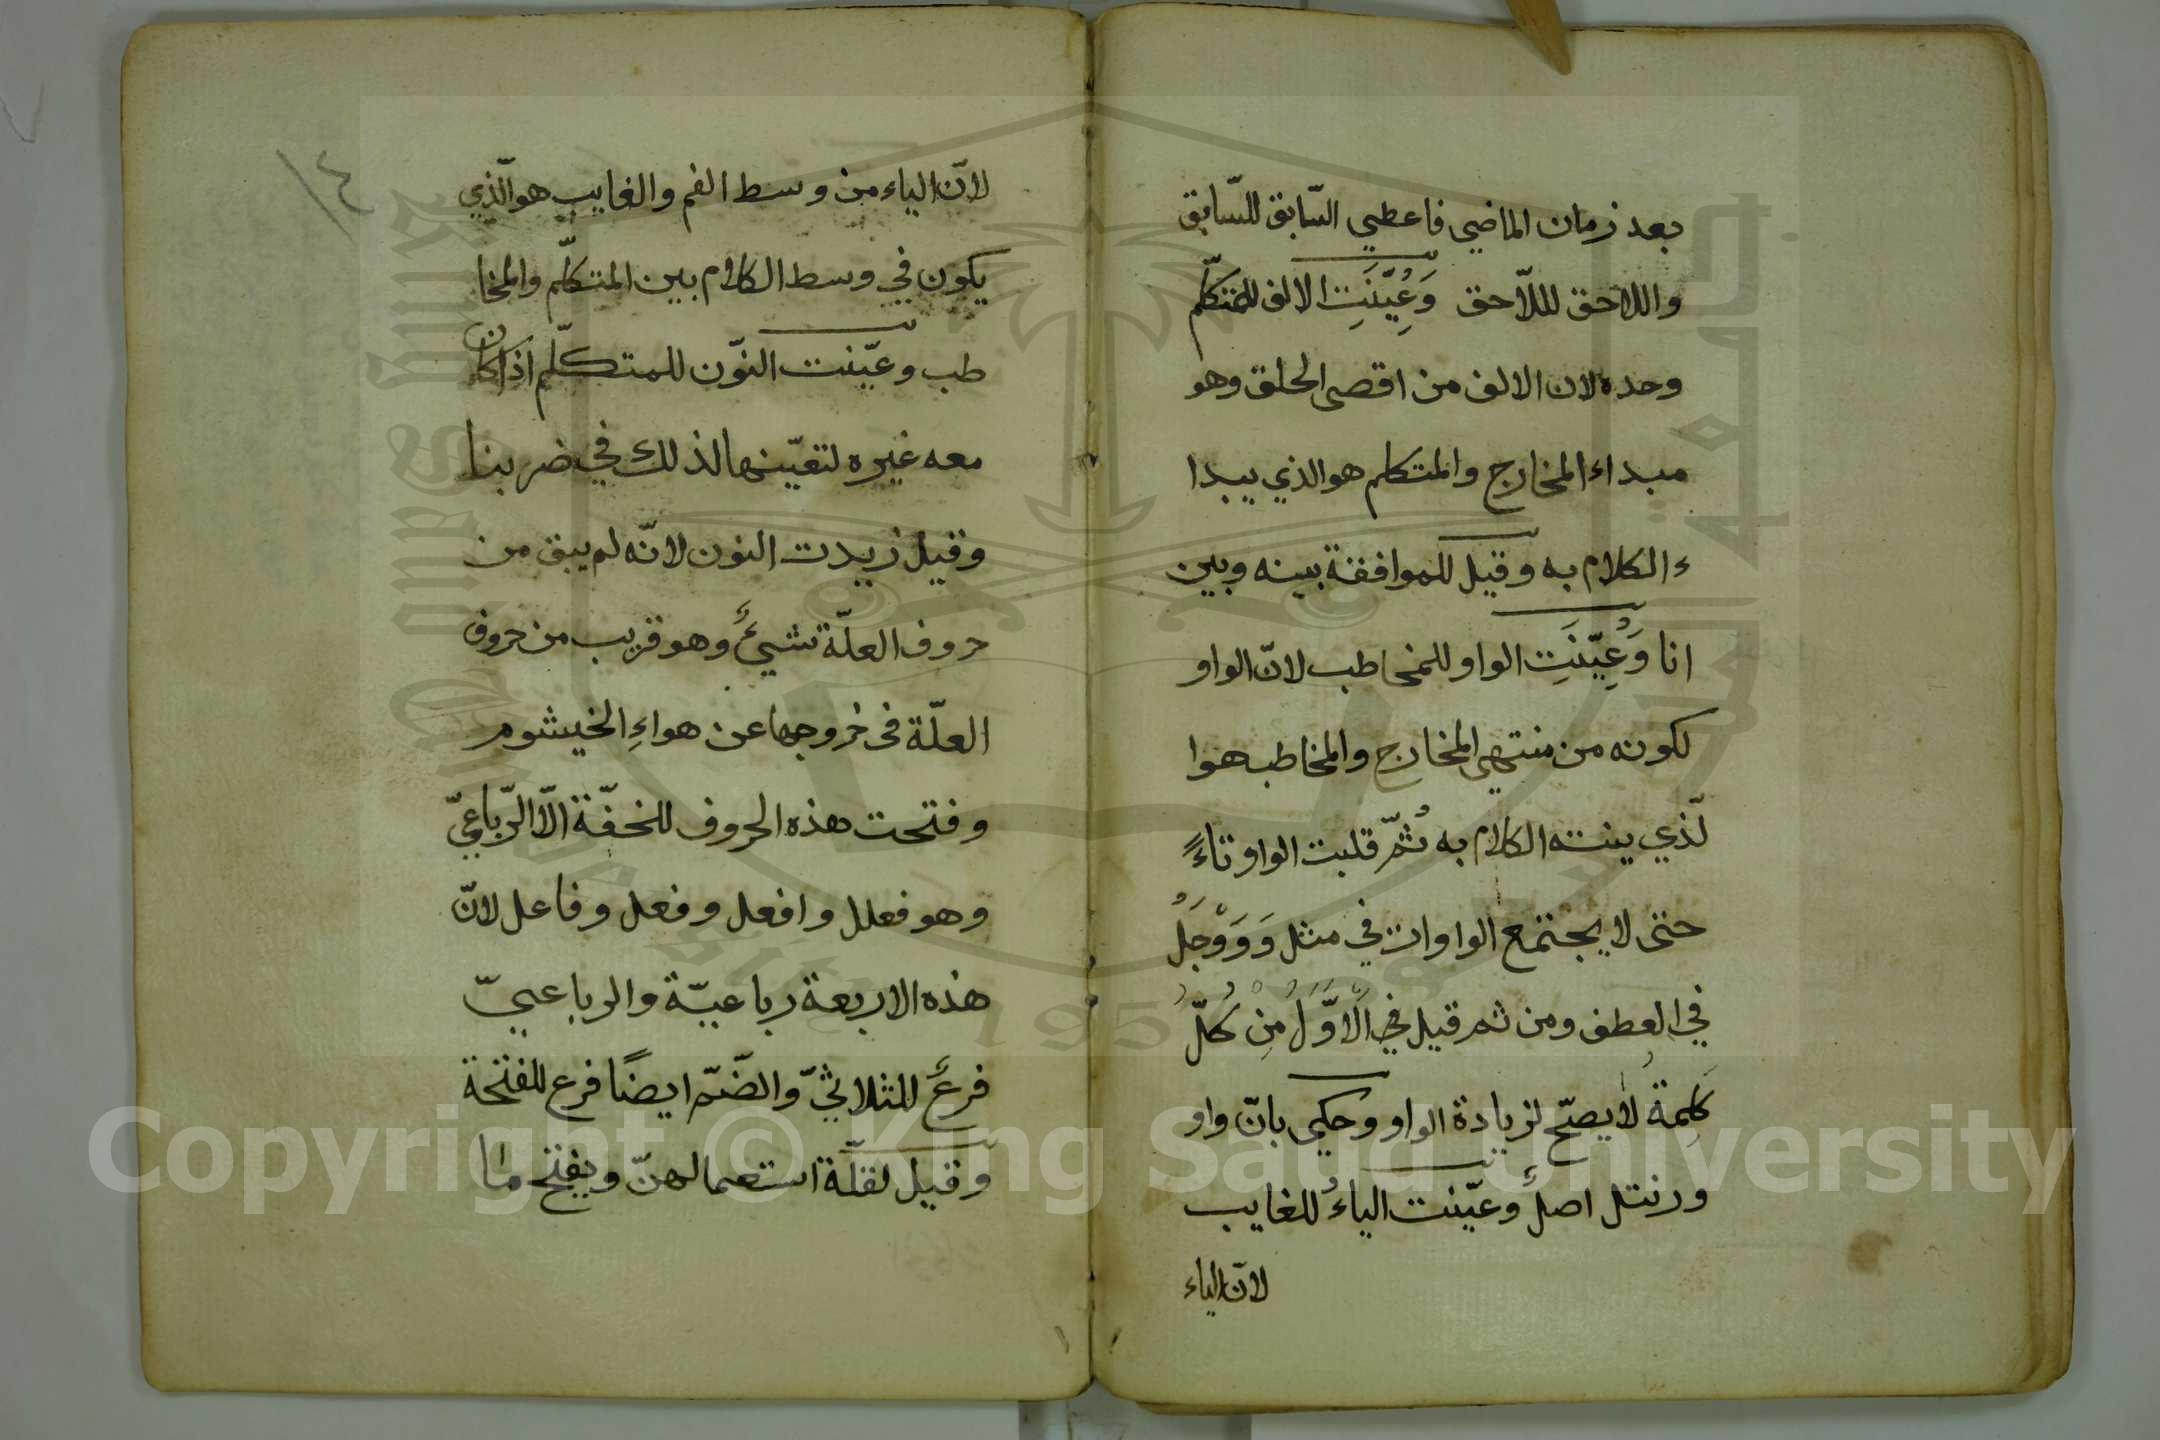 بعد زمان الماضي فاعطي السّابق للسّابق
واللاحق للّلاحق وَعُيِّنَتِ الالف للمتكلّم
وحده لان الالف من اقصى الحلق وهو
مبداء المخارج والمتكلم هو الذي يبدا
ء الكلام به وقيل للموافقة بينه وبين
انا وَعُيِّنَتِ الواو للمخاطب لانّ الواو
لكونه من منتهي المخارج والمخاطب هوا
لّذي ينته الكلام به ثُمّ قلبت الواو تاءً
حتى لا يجتمع الواوات في مثل وَوَوْجَلُ
في العطف ومن ثم قيل في الْاَوَّلُ مِنْ كُلّ
كَلِمةُ لا يصحّ لزيادة الواو وحكي بانّ واو
ورنتل اصلٌ وعيّنت الياءُ للغايب
لانّ الياء
١٤
لانّ الياء من وسط الفم والغايب هو الّذي
يكون في وسط الكلام بين المتكلّم والمخا
طب وعيّنت النّون للمتكلّم اذا كان
معه غيره لتعيّنها لذلك في ضربنا
وقيل زيدت النون لانّه لم يبق من
حروف العلّة شيئٌ وهو قريب من حروف
العلّة في خروجها عن هواءِ الخيشوم
وفتحت هذه الحروف للخفّة الّا الرّباعيّ
وهو فعلل وافعل وفعل وفاعل لانّ
هذه الاربعة رباعيّة والرباعيّ
فرعٌ للثلاثيّ والضّمّ ايضًا فرع للفتحة
وقيل لقلّة استعمالهنّ ويفتح ما
Copyright © King Saud University
King Saud University
1957